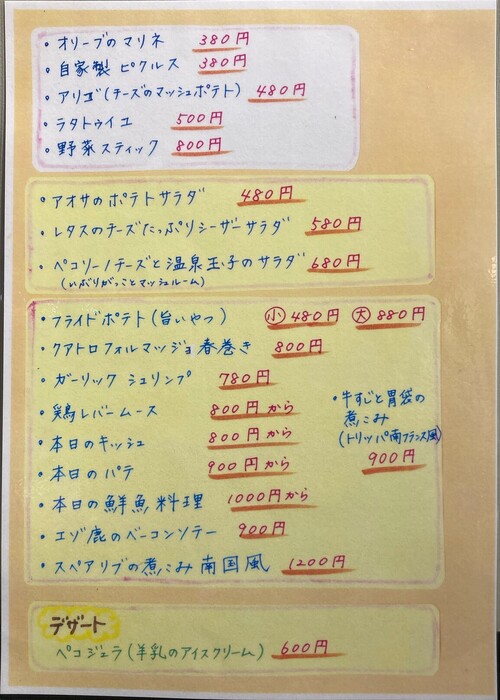 ・オリーブのマリネ 380円
・自家製ピクルス 380円
・アリゴ(チーズのマッシュポテト) 480円
・ラタトゥイユ 500円
・野菜スティック 800円
・アオサのポテトサラダ 480円
・レタスのチーズたっぷりシーザーサラダ 580円
・ペコリーノチーズと温泉玉子のサラダ 680円
(いぶりがっことマッシュルーム)
・フライドポテト(旨いやつ) 小 480円 大 880円
・クアトロフォルマッジョ春巻き 800円
・ガーリックシュリンプ 780円
・鶏レバームース 800円から
・本日のキッシュ 800円から
・本日のパテ 900円から
・本日の鮮魚料理 1000円から
・エゾ鹿のベーコンソテー 900円
・スペアリブの煮こみ南国風 1200円
・牛すじと胃袋の
煮こみ
(トリッパ南フランス風)
900円
デザート
ペコジェラ(羊乳のアイスクリーム) 600円